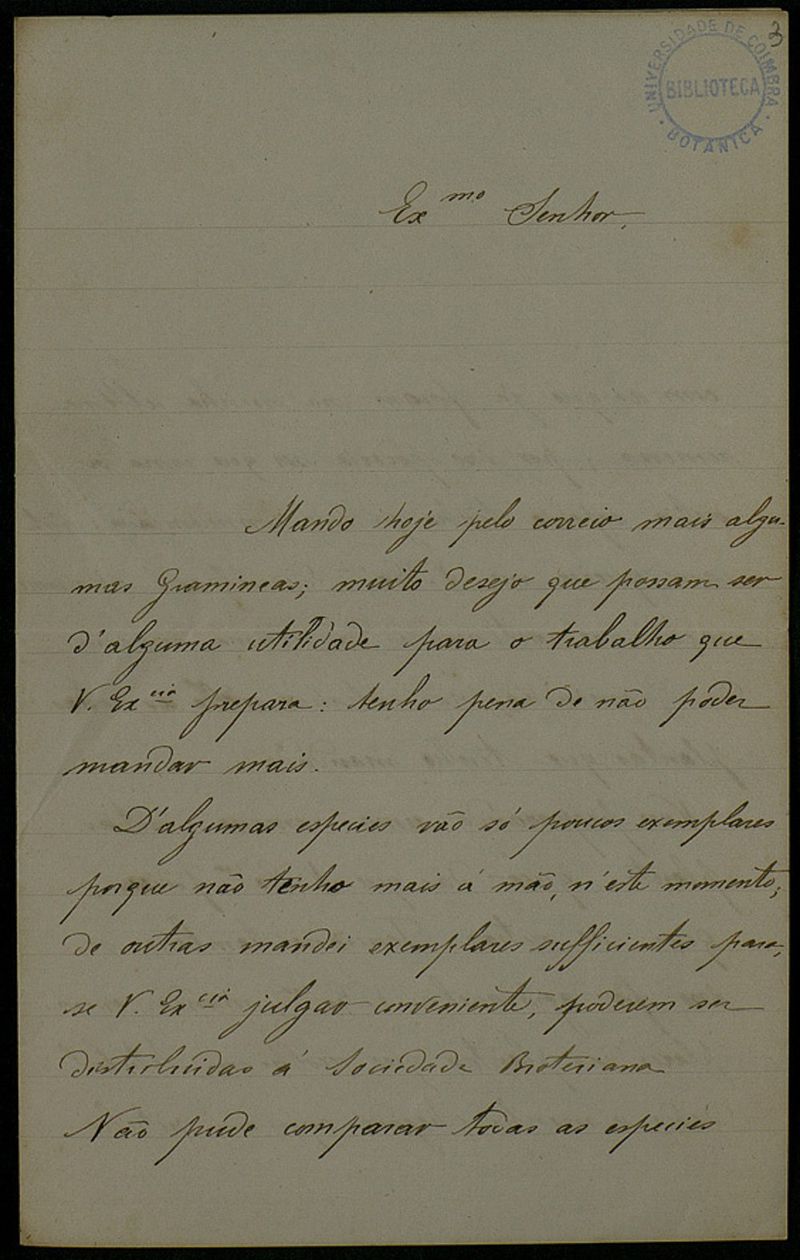 3
UNIVERSIDADE DE COIMBRA
BIBLIOTECA
BOTANICA
Ex.mo Senhor,
Mando hoje pelo correio mais algu-
mas Gramineas; muito desejo que possam ser
d'alguma utilidade para o trabalho que
V. Ex.cia prepara: tenho pena de não poder
mandar mais.
D'algumas especies vão só poucos exemplares
porque não tenho mais á mão, n'este momento;
de outras mandei exemplares sufficientes para,
se V. Ex.cia julgar conveniente, pòderem ser
distribuidas á Sociedade Broteriana
Não pude comparar todas as especies